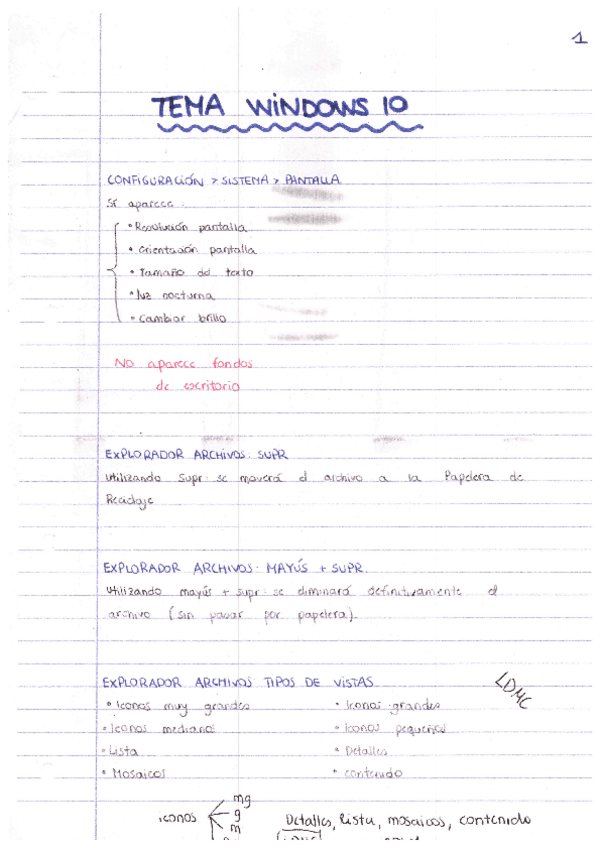 1
TEMA WINDOWS 10
CONFIGURACIÓN > SISTEMA > PANTALLA
Sí aparece:
• Resolución pantalla
• Orientación pantalla
• Tamaño del texto
• luz nocturna
• Cambiar brillo
No aparece fondos
de escritorio
EXPLORADOR ARCHIVOS: SUPR
Utilizando Supr. se moverá el archivo a la Papelera de
Reciclaje
EXPLORADOR ARCHIVOS: MAYÚS + SUPR.
Utilizando mayús + supr. se eliminará definitivamente el
archivo (sin pasar por papelera).
EXPLORADOR ARCHIVOS TIPOS DE VISTAS
LDMC
• Iconos muy grandes • Iconos grandes
• Iconos medianos • Iconos pequeños
• Lista • Detalles
• Mosaicos • Contenido
mg
iconos g Detalles, lista, mosaicos, contenido
m